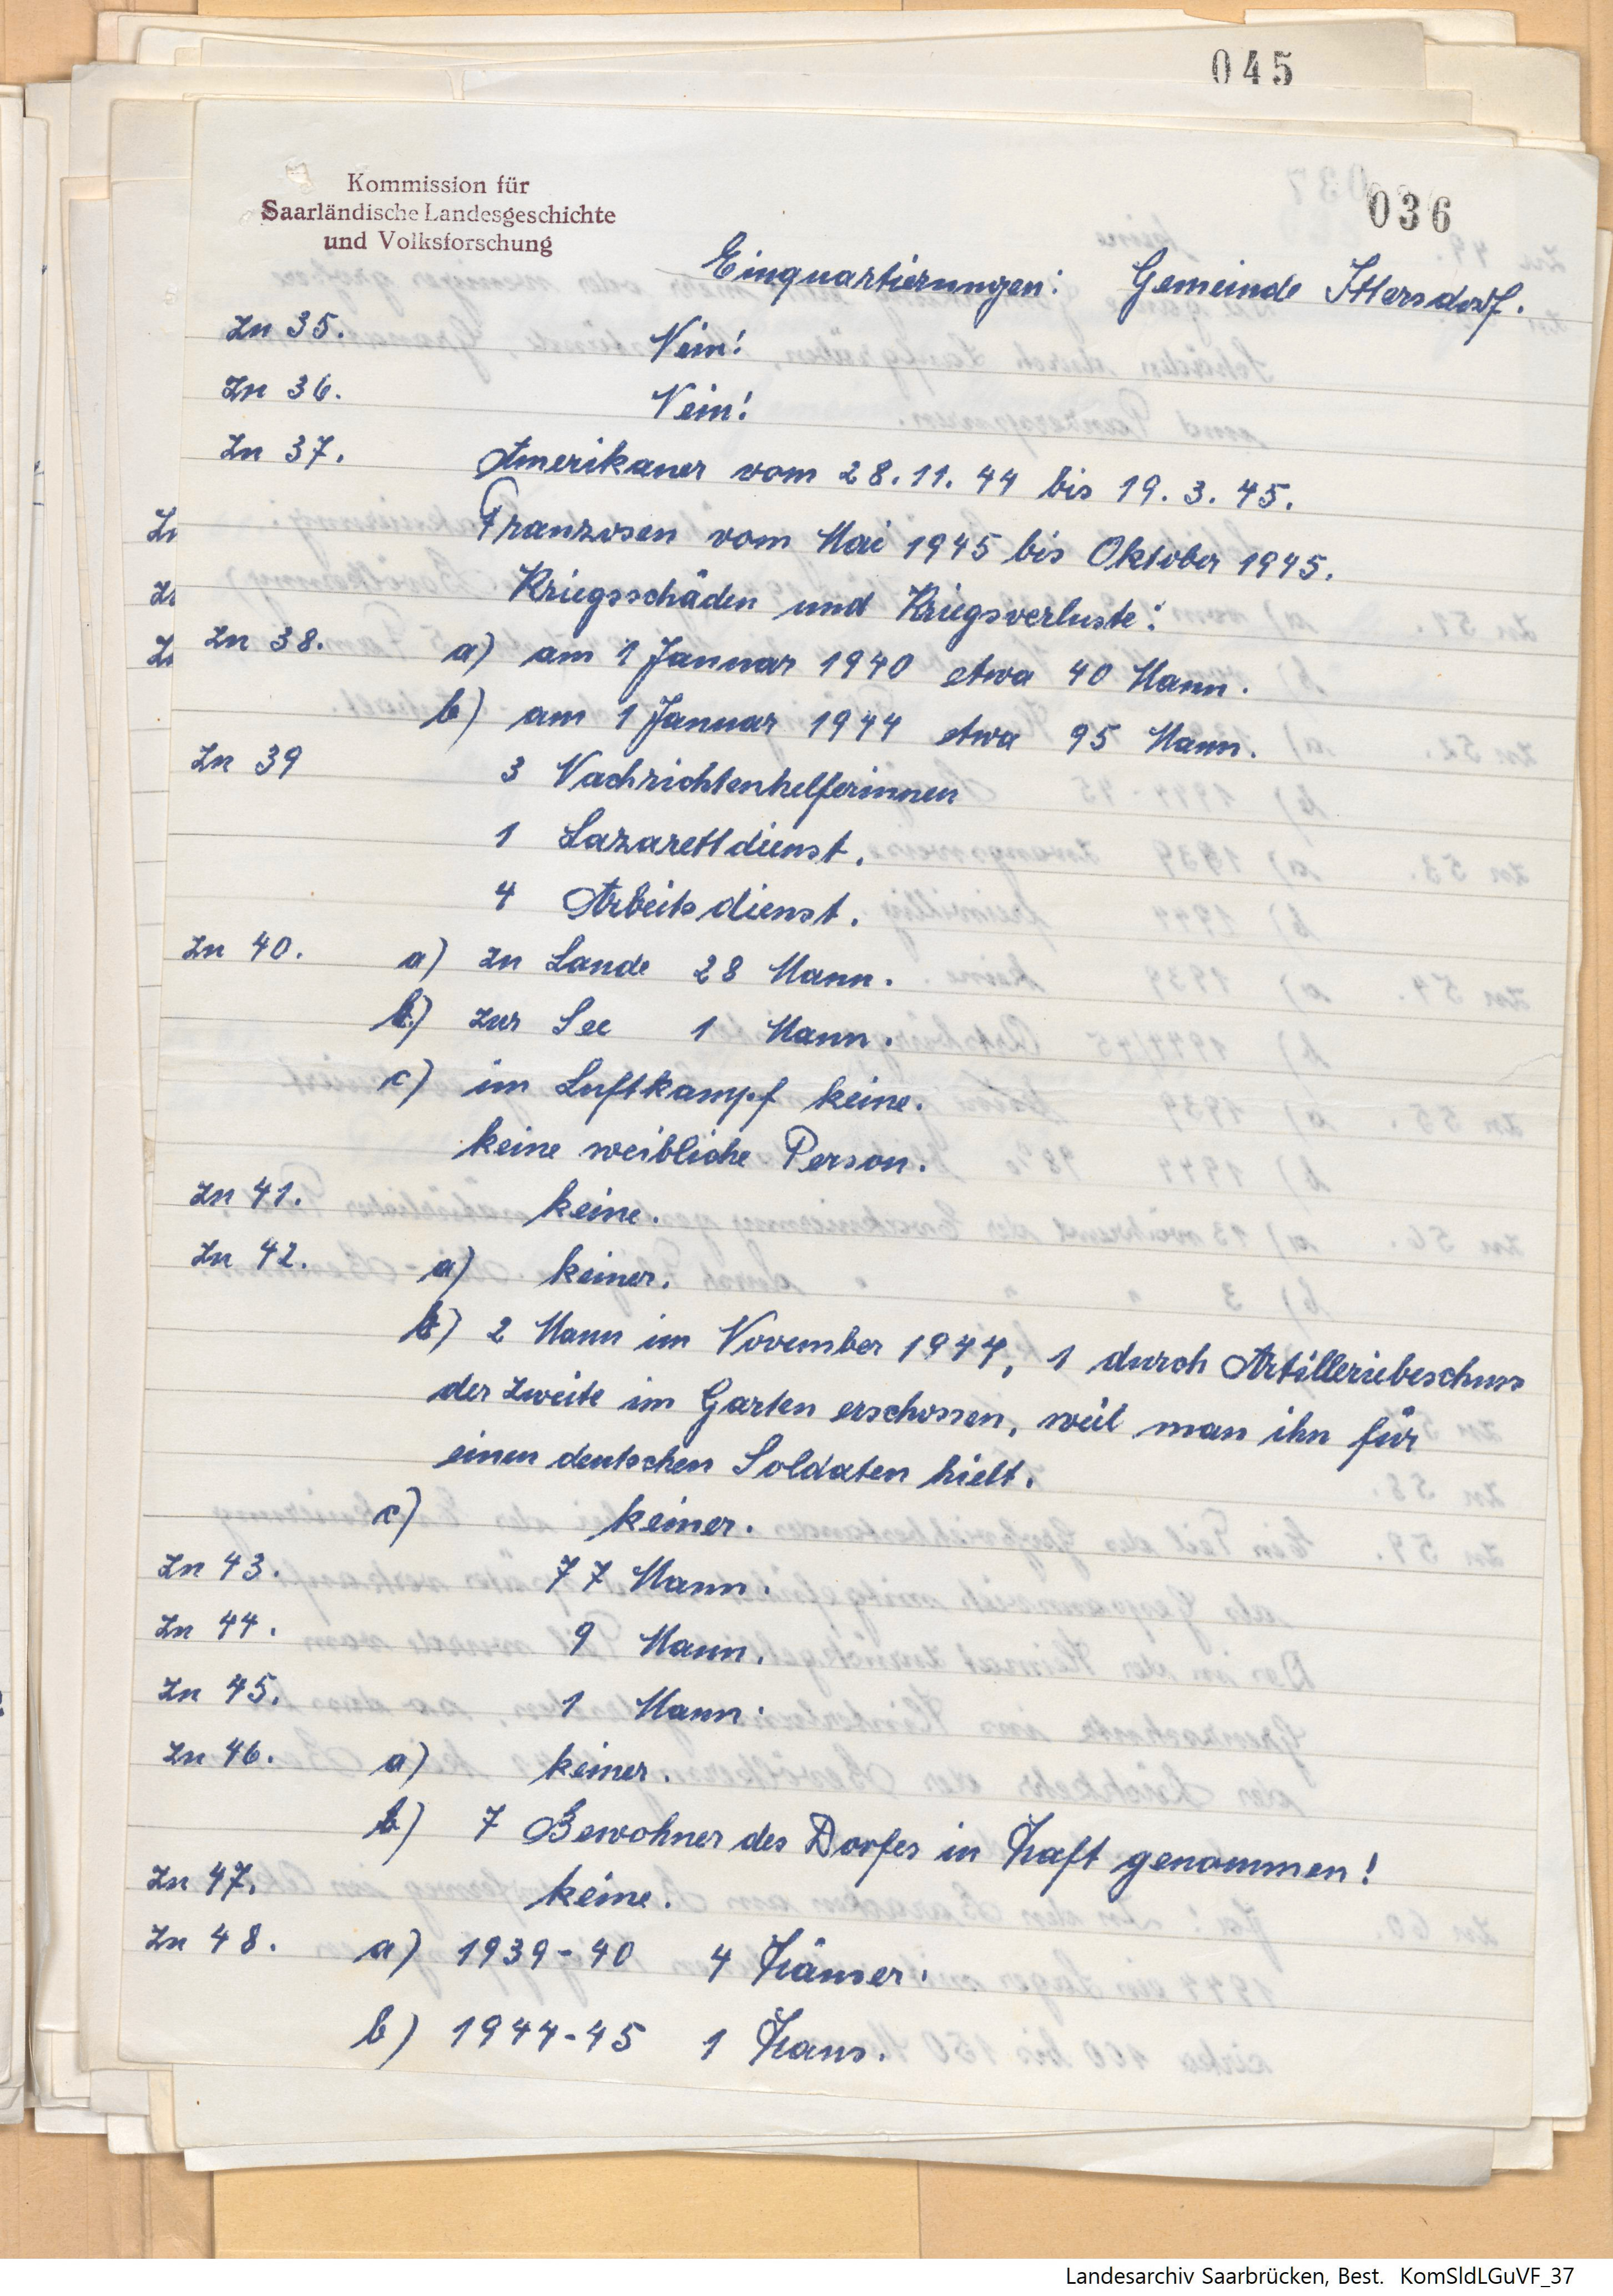 045
036
Kommission für
Saarländische Landesgeschichte
und Volksforschung
Einquartierungen: Gemeinde Ittersdorf.
Zu 35. Nein!
Zu 36. Nein!
Zu 37. Amerikaner vom 28.11.44 bis 19.3.45.
Franzosen vom Mai 1945 bis Oktober 1945.
Kriegsschäden und Kriegsverluste:
Zu 38. a) am 1 Januar 1940 etwa 40 Mann.
b) am 1 Januar 1944 etwa 95 Mann.
Zu 39 3 Nachrichtenhelferinnen
1 Lazarettdienst.
4 Arbeitsdienst.
Zu 40. a) zu Lande 28 Mann.
b) zur See 1 Mann.
c) im Luftkampf keine.
keine weibliche Person.
Zu 41. keine.
Zu 42. a) keiner.
b) 2 Mann im November 1944, 1 durch Artilleriebeschuss
der zweite im Garten erschossen, weil man ihn für
einen deutschen Soldaten hielt.
c) keiner.
Zu 43. 77 Mann.
Zu 44. 9 Mann.
Zu 45. 1 Mann.
Zu 46. a) keiner.
b) 7 Bewohner des Dorfes in Haft genommen!
Zu 47. keine.
Zu 48. a) 1939-40 4 Häuser.
b) 1944-45 1 Haus.
Landesarchiv Saarbrücken, Best. KomSldLGuVF_37